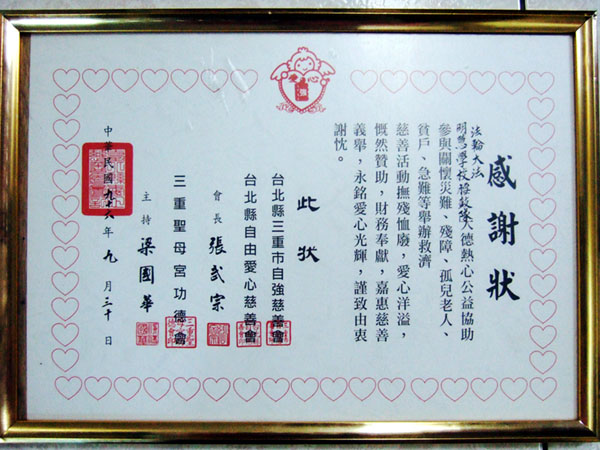 感謝狀
法輪大法
明慧學校腰鼓隊大德熱心公益協助
參與關懷災難、殘障、孤兒老人、
貧戶、急難等舉辦救濟
慈善活動撫殘恤廢，愛心洋溢，
慨然贊助，財務奉獻，嘉惠慈善
義舉，永銘愛心光輝，謹致由衷
謝忱。
此狀
台北縣三重市自強慈善會
台北縣自由愛心慈善會
會長 張弍宗
三重聖母宮功德會
主持 梁國華
中華民國九十六年九月三十日